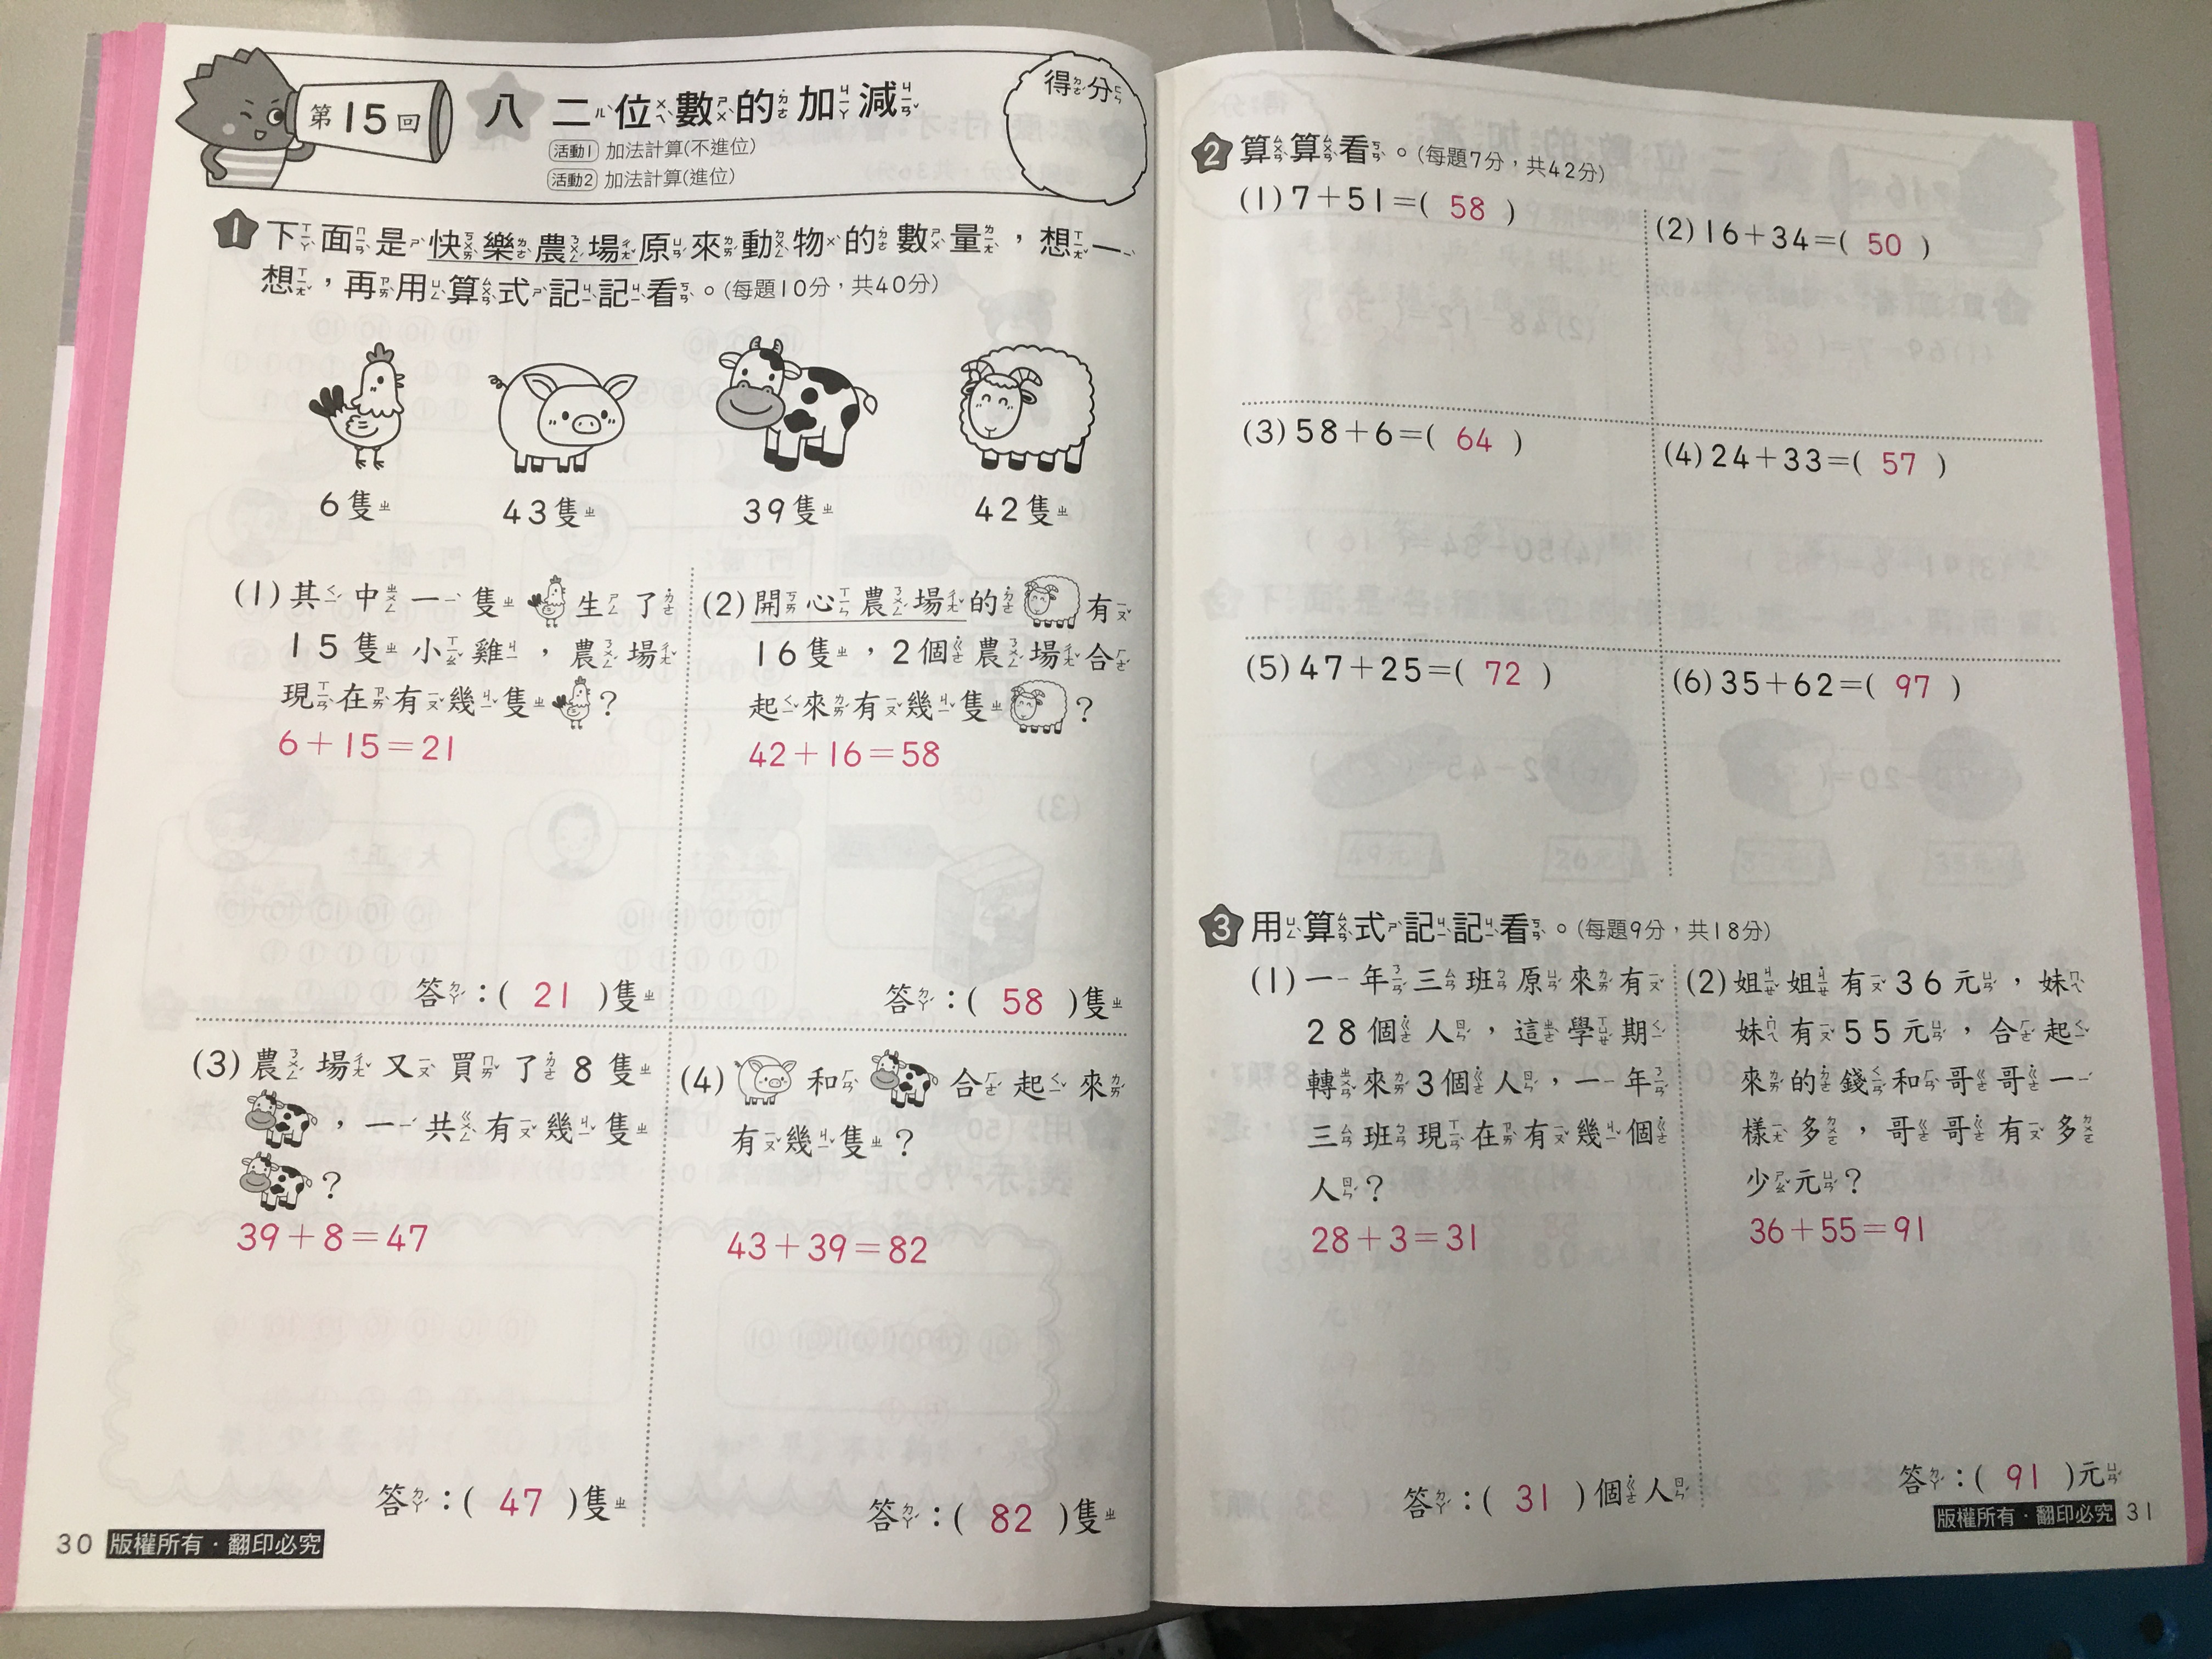 第15回
八 二位數的加減
活動1 加法計算(不進位)
活動2 加法計算(進位)
得分
1 下面是快樂農場原來動物的數量，想一
想，再用算式記記看。(每題10分，共40分)
6隻 43隻 39隻 42隻
(1)其中一隻生了
15隻小雞，農場
現在有幾隻？
6+15=21
答：( 21 )隻
(2)開心農場的有
16隻，2個農場合
起來有幾隻？
42+16=58
答：( 58 )隻
(3)農場又買了8隻
，一共有幾隻
？
39+8=47
答：( 47 )隻
(4)和合起來
有幾隻？
43+39=82
答：( 82 )隻
30 版權所有・翻印必究
2 算算看。(每題7分，共42分)
(1)7+51=( 58 )
(2)16+34=( 50 )
(3)58+6=( 64 )
(4)24+33=( 57 )
(5)47+25=( 72 )
(6)35+62=( 97 )
3 用算式記記看。(每題9分，共18分)
(1)一年三班原來有
28個人，這學期
轉來3個人，一年
三班現在有幾個
人？
28+3=31
答：( 31 )個人
(2)姐姐有36元，妹
妹有55元，合起
來的錢和哥哥一
樣多，哥哥有多
少元？
36+55=91
答：( 91 )元
版權所有・翻印必究 31